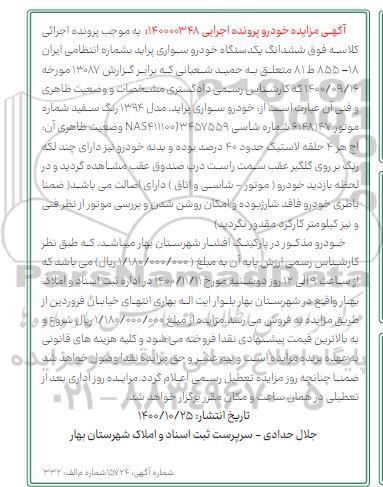 آگهی مزایده خودرو پرونده اجرایی ۱۴۰۰۰۰۳۴۸: به موجب پرونده اجرائی
کلاسه فوق ششدانگ یکدستگاه خودرو سواری پراید بشماره انتظامی ایران
۱۸- ۸۵۵ ط ۸۱ متعلق به حمید شعبانی که برابر گزارش ۱۳۰۸۷ مورخه
۱۴۰۰/۰۹/۱۶ که کارشناس رسمی دادگستری مشخصات و وضعیت ظاهری
و فنی آن عبارت است از: خودرو سواری پراید، مدل ۱۳۹۴ رنگ سفید شماره
موتور ۶۱۴۸۱۴۷ شماره شاسی NAS۴۱۱۱۰۰J۳۴۵۷۵۵۹ وضعیت ظاهری آن:
اج هر ۴ حلقه لاستیک حدود ۴۰ درصد بوده و بدنه خودرو نیز دارای چند لکه
رنگ بر روی گلگیر عقب سمت راست درب صندوق عقب مشاهده گردید و در
لحظه بازدید خودرو ( موتور - شاسی و اتاق ) دارای اصالت می باشد( ضمنا
باطری خودرو فاقد شارژبوده و امکان روشن شدن و بررسی موتور از نظر فنی
و نیز کیلومتر کارکرد مقدور نگردید)
خودرو مذکور در پارکینگ افشار شهرستان بهار میباشد، که طبق نظر
کارشناس رسمی ارزش پایه آن به مبلغ ( ۱/۱۸۰/۰۰۰/۰۰۰ ریال) می باشد که
از ساعت ۹ الی ۱۲ روز دوشنبه مورخ ۱۴۰۰/۱۱/۱۱ در اداره ثبت اسناد و املاک
بهار واقع در شهرستان بهار بلوار ایت اله بهاری انتهای خیابان فروردین از
طریق مزایده به فروش می رسد.مزایده از مبلغ ۱/۱۸۰/۰۰۰/۰۰۰ ریال شروع و
به بالاترین قیمت پیشنهادی نقدا فروخته می شود و کلیه هزینه های قانونی
به عهده برنده مزایده است و نیم عشر و حق مزایده نقدا وصول خواهد شد
ضمنا چنانچه روز مزایده تعطیل رسمی اعلام گردد،مزایده روز اداری بعد از
تعطیلی در همان ساعت و مکان مقرر برگزار خواهد شد.
تاریخ انتشار: ۱۴۰۰/۱۰/۲۵
جلال حدادی - سرپرست ثبت اسناد و املاک شهرستان بهار
شماره آگهی: ۱۵۷۲۴شماره م‌الف: ۳۳۲